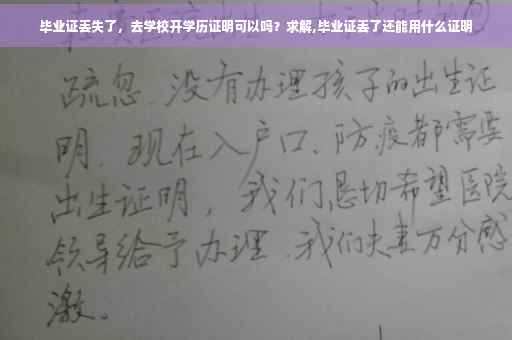 毕业证丢失了，去学校开学历证明可以吗？求解,毕业证丢了还能用什么证明
疏忽、没有办理孩子的出生证
明、现在入户口、防疫都需要
出生证明，我们恳切希望医院
领导给予办理、我们夫妻万分感
激。